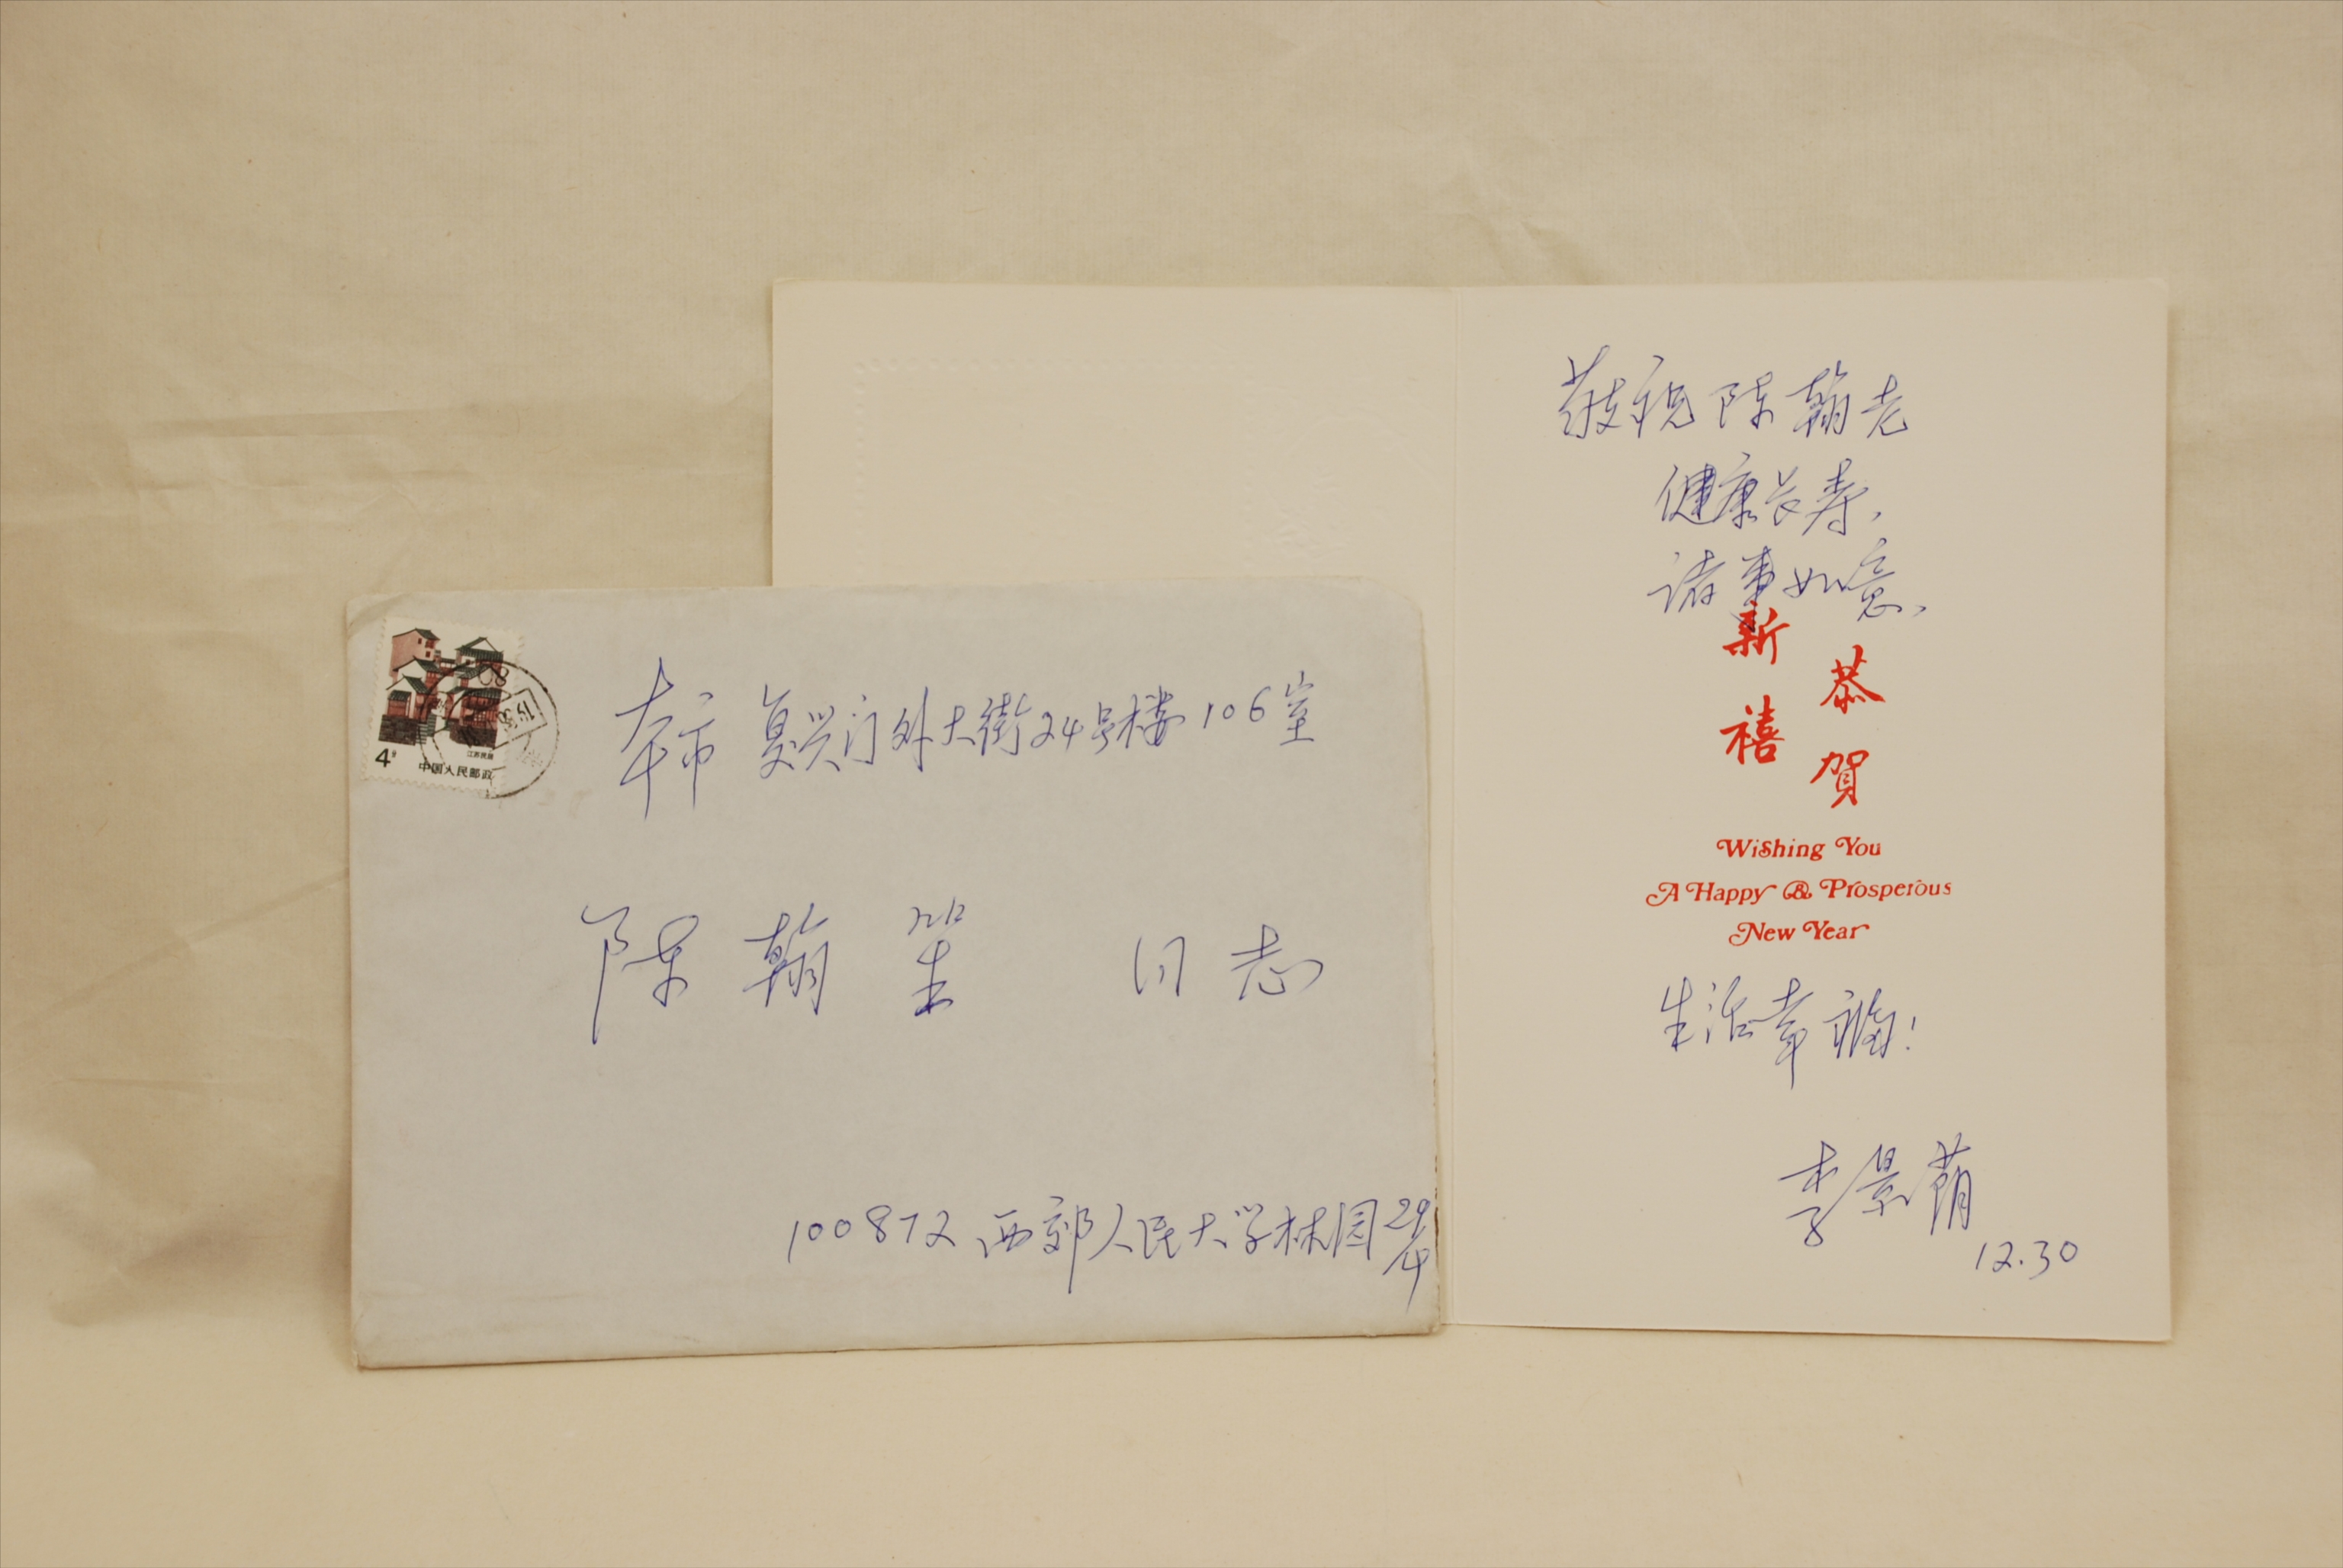 4分
江苏民居
中国人民邮政
本市 复兴门外大街24号楼106室
陈翰笙 同志
100872 西郊人民大学林园29
敬祝陈翰老
健康长寿、
诸事如意、
恭贺
新禧
Wishing You
A Happy & Prosperous
New Year
生活幸福!
李景荫
12.30